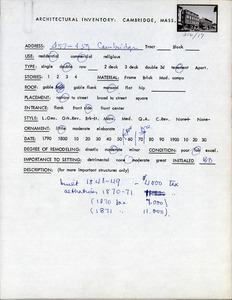 ARCHITECTURAL INVENTORY: CAMBRIDGE, MASS.
ADDRESS: Cambridge Tract Block
USE: residential commercial religious
TYPE: single double row 2 deck 3 deck double 3d tenement Apart.
STORIES: 1 2 3 4 MATERIAL: Frame Brick Mod. compo
ROOF: gable gable flank mansard flat hip
PLACEMENT: narrow to street broad to street square
ENTRANCE: flank front side front center
STYLE: L.Geo. Grk.Rev. Brk-It. Mans Med. Q.A. C.Rev. Nonent.
ORNAMENT: little moderate elaborate
DATE: 1790 10 20 30 40 50 60 70 80 90 1900 10 20 30
DEGREE OF REMODELING: drastic moderate minor CONDITION: poor fair excel.
IMPORTANCE TO SETTING: detrimental none moderate great INITIALED
DESCRIPTION: (for more important structures only)
built 1848-49 - $4000 tax
1870-71
(1870 tax 7,000)
(1871 " 11,000)